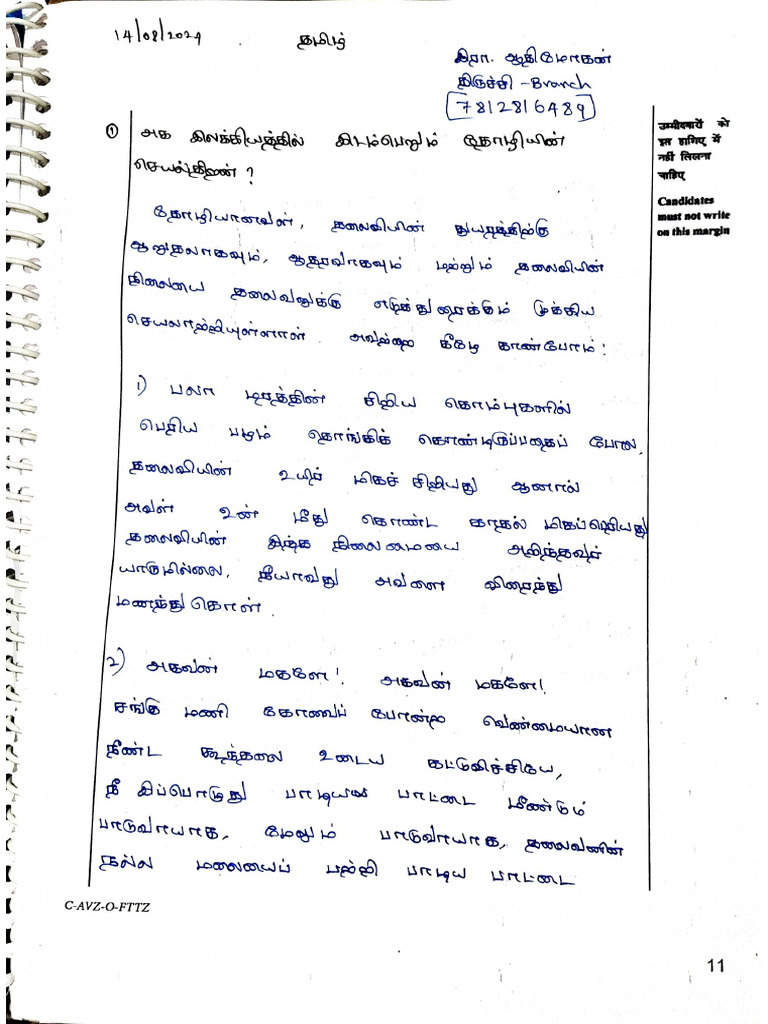 14/08/2024 தமிழ்
இரா. ஆதிமோகன்
திருச்சி - Branch
7812816489
① அக இலக்கியத்தில் இடம்பெறும் தோழியின்
செயல்திறன்?
उम्मीदवारों को
इस हाशिए में
नहीं लिखना
चाहिए
Candidates
must not write
on this margin
தோழியானவள், தலைவியின் துயரத்திற்கு
ஆறுதலாகவும், ஆதரவாகவும் மற்றும் தலைவியின்
நிலையை தலைவனுக்கு எடுத்துரைக்கும் முக்கிய
செயலாற்றியுள்ளாள் அவற்றை கீழே காண்போம்:
1) பலா மரத்தின் சிறிய கொம்புகளில்
பெரிய பழம் தொங்கிக் கொண்டிருப்பதைப் போல,
தலைவியின் உயிர் மிகச் சிறியது ஆனால்
அவள் உன் மீது கொண்ட காதல் மிகப்பெரியது
தலைவியின் இந்த நிலைமையை அறிந்தவர்
யாருமில்லை, நீயாவது அவளை விரைந்து
மணந்து கொள்.
2) அகவன் மகளே! அகவன் மகளே!
சங்கு மணி கோவைப் போன்ற வெண்மையான
நீண்ட கூந்தலை உடைய கட்டுவிச்சியே,
நீ இப்பொழுது பாடிய பாட்டை மீண்டும்
பாடுவாயாக, மேலும் பாடுவாயாக, தலைவனின்
நல்ல மலையைப் பற்றி பாடிய பாட்டை
C-AVZ-O-FTTZ
11